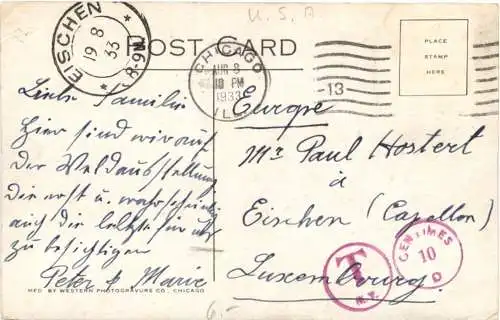 U.S.A
POST CARD
EISCHEN
19 8
33
CHICAGO
AUG 8
10 PM
1933
ILL.
-13
PLACE
STAMP
HERE
Liebe Familie
Hier sind wir auf
der Weldausstellung
die erste u. wahrscheinlig
auch die letzte für uns
zu besichtigen
Peter & Marie
Europe
Mr Paul Hostert
à
Eischen (Capellen)
Luxembourg.
T
N.Y.
CENTIMES
10
MFD BY WESTERN PHOTOGRAVURE CO., CHICAGO
6.-